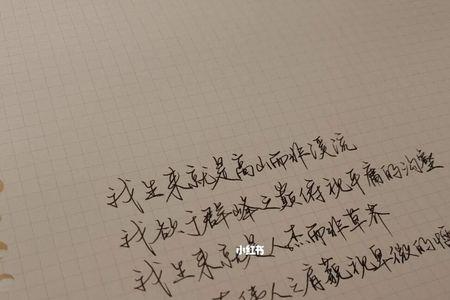 我生来就是高山而非溪流
我欲于群峰之巅俯视平庸的沟壑
小红书
我生来就是人杰而非草芥
伟人之肩藐视卑微的懦